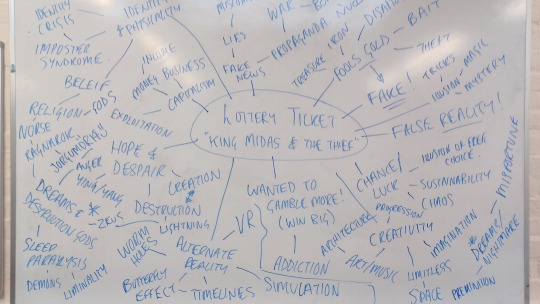 IDENTITY
CRISIS
IDENTITY
& PHYSICALITY
IMPOSTER
SYNDROME
LIES
FAKE
NEWS
WAR
PROPAGANDA
TREASURE
IRON
FOOLS GOLD
BAIT
THEFT
FAKE!
TRICKS
MAGIC
ILLUSION
MYSTERY
INCOME
MONEY
BUSINESS
CAPITALISM
BELEIF
RELIGION
GODS
EXPLOITATION
NORSE
RAGNAROK
ANGER
YING/YANG
HOPE &
DESPAIR
LOTTERY TICKET
"KING MIDAS & THE THIEF"
FALSE REALITY!
CREATION
DESTRUCTION
LIGHTNING
ZEUS
DREAMS &
DESTRUCTION GODS
SLEEP
PARALYSIS
DEMONS
LIMINALITY
WANTED TO
GAMBLE MORE!
(WIN BIG)
ADDICTION
VR
SIMULATION
WORM
HOLES
ALTERNATE
REALITY
BUTTERFLY
EFFECT
TIMELINES
CHANCE/
LUCK
ILLUSION OF FREE
CHOICE
SUSTAINABILITY
CHAOS
PROGRESSION
ARCHITECTURE
CREATIVITY
ART/MUSIC
IMAGINATION
LIMITLESS
SPACE
PREMONITION
DREAMS/
NIGHTMARE
MISFORTUNE